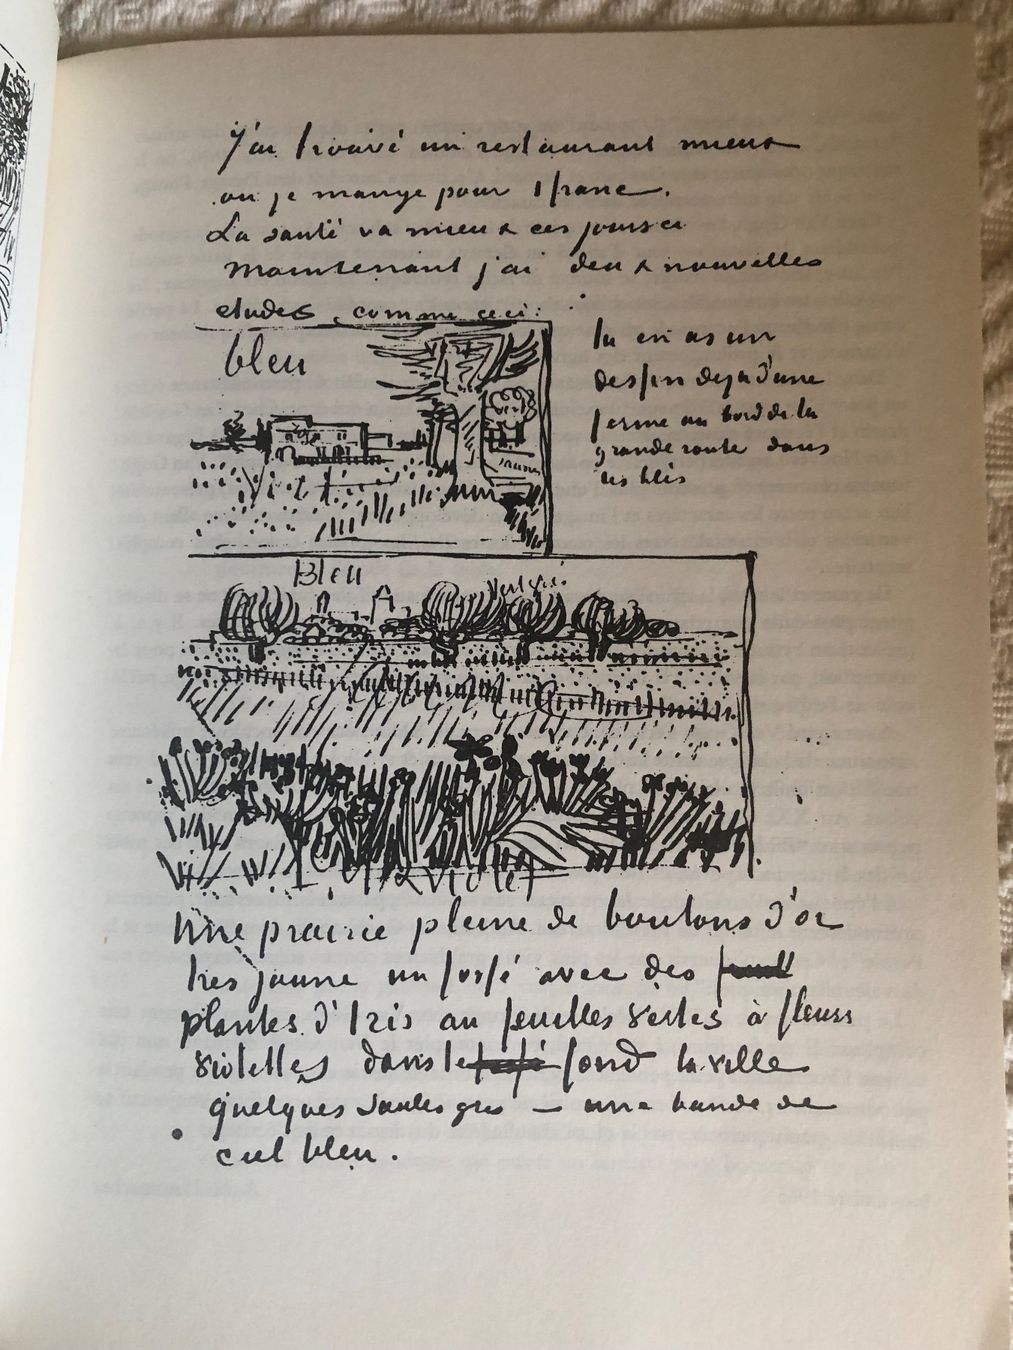 J'ai trouvé un restaurant mieux
ou je mange pour 1 franc.
La santé va mieux ces jours ci
Maintenant j'ai deux nouvelles
etudes comme ceci:
bleu
tu en as un
dessin deja d'une
ferme au bord de la
grande route dans
les blés
Bleu
violet
Une prairie pleine de boutons d'or
tres jaune un fossé avec des
plantes d'Iris au feuilles vertes à fleurs
violettes dans le fond la ville
quelques saules gris — une bande de
ciel bleu.